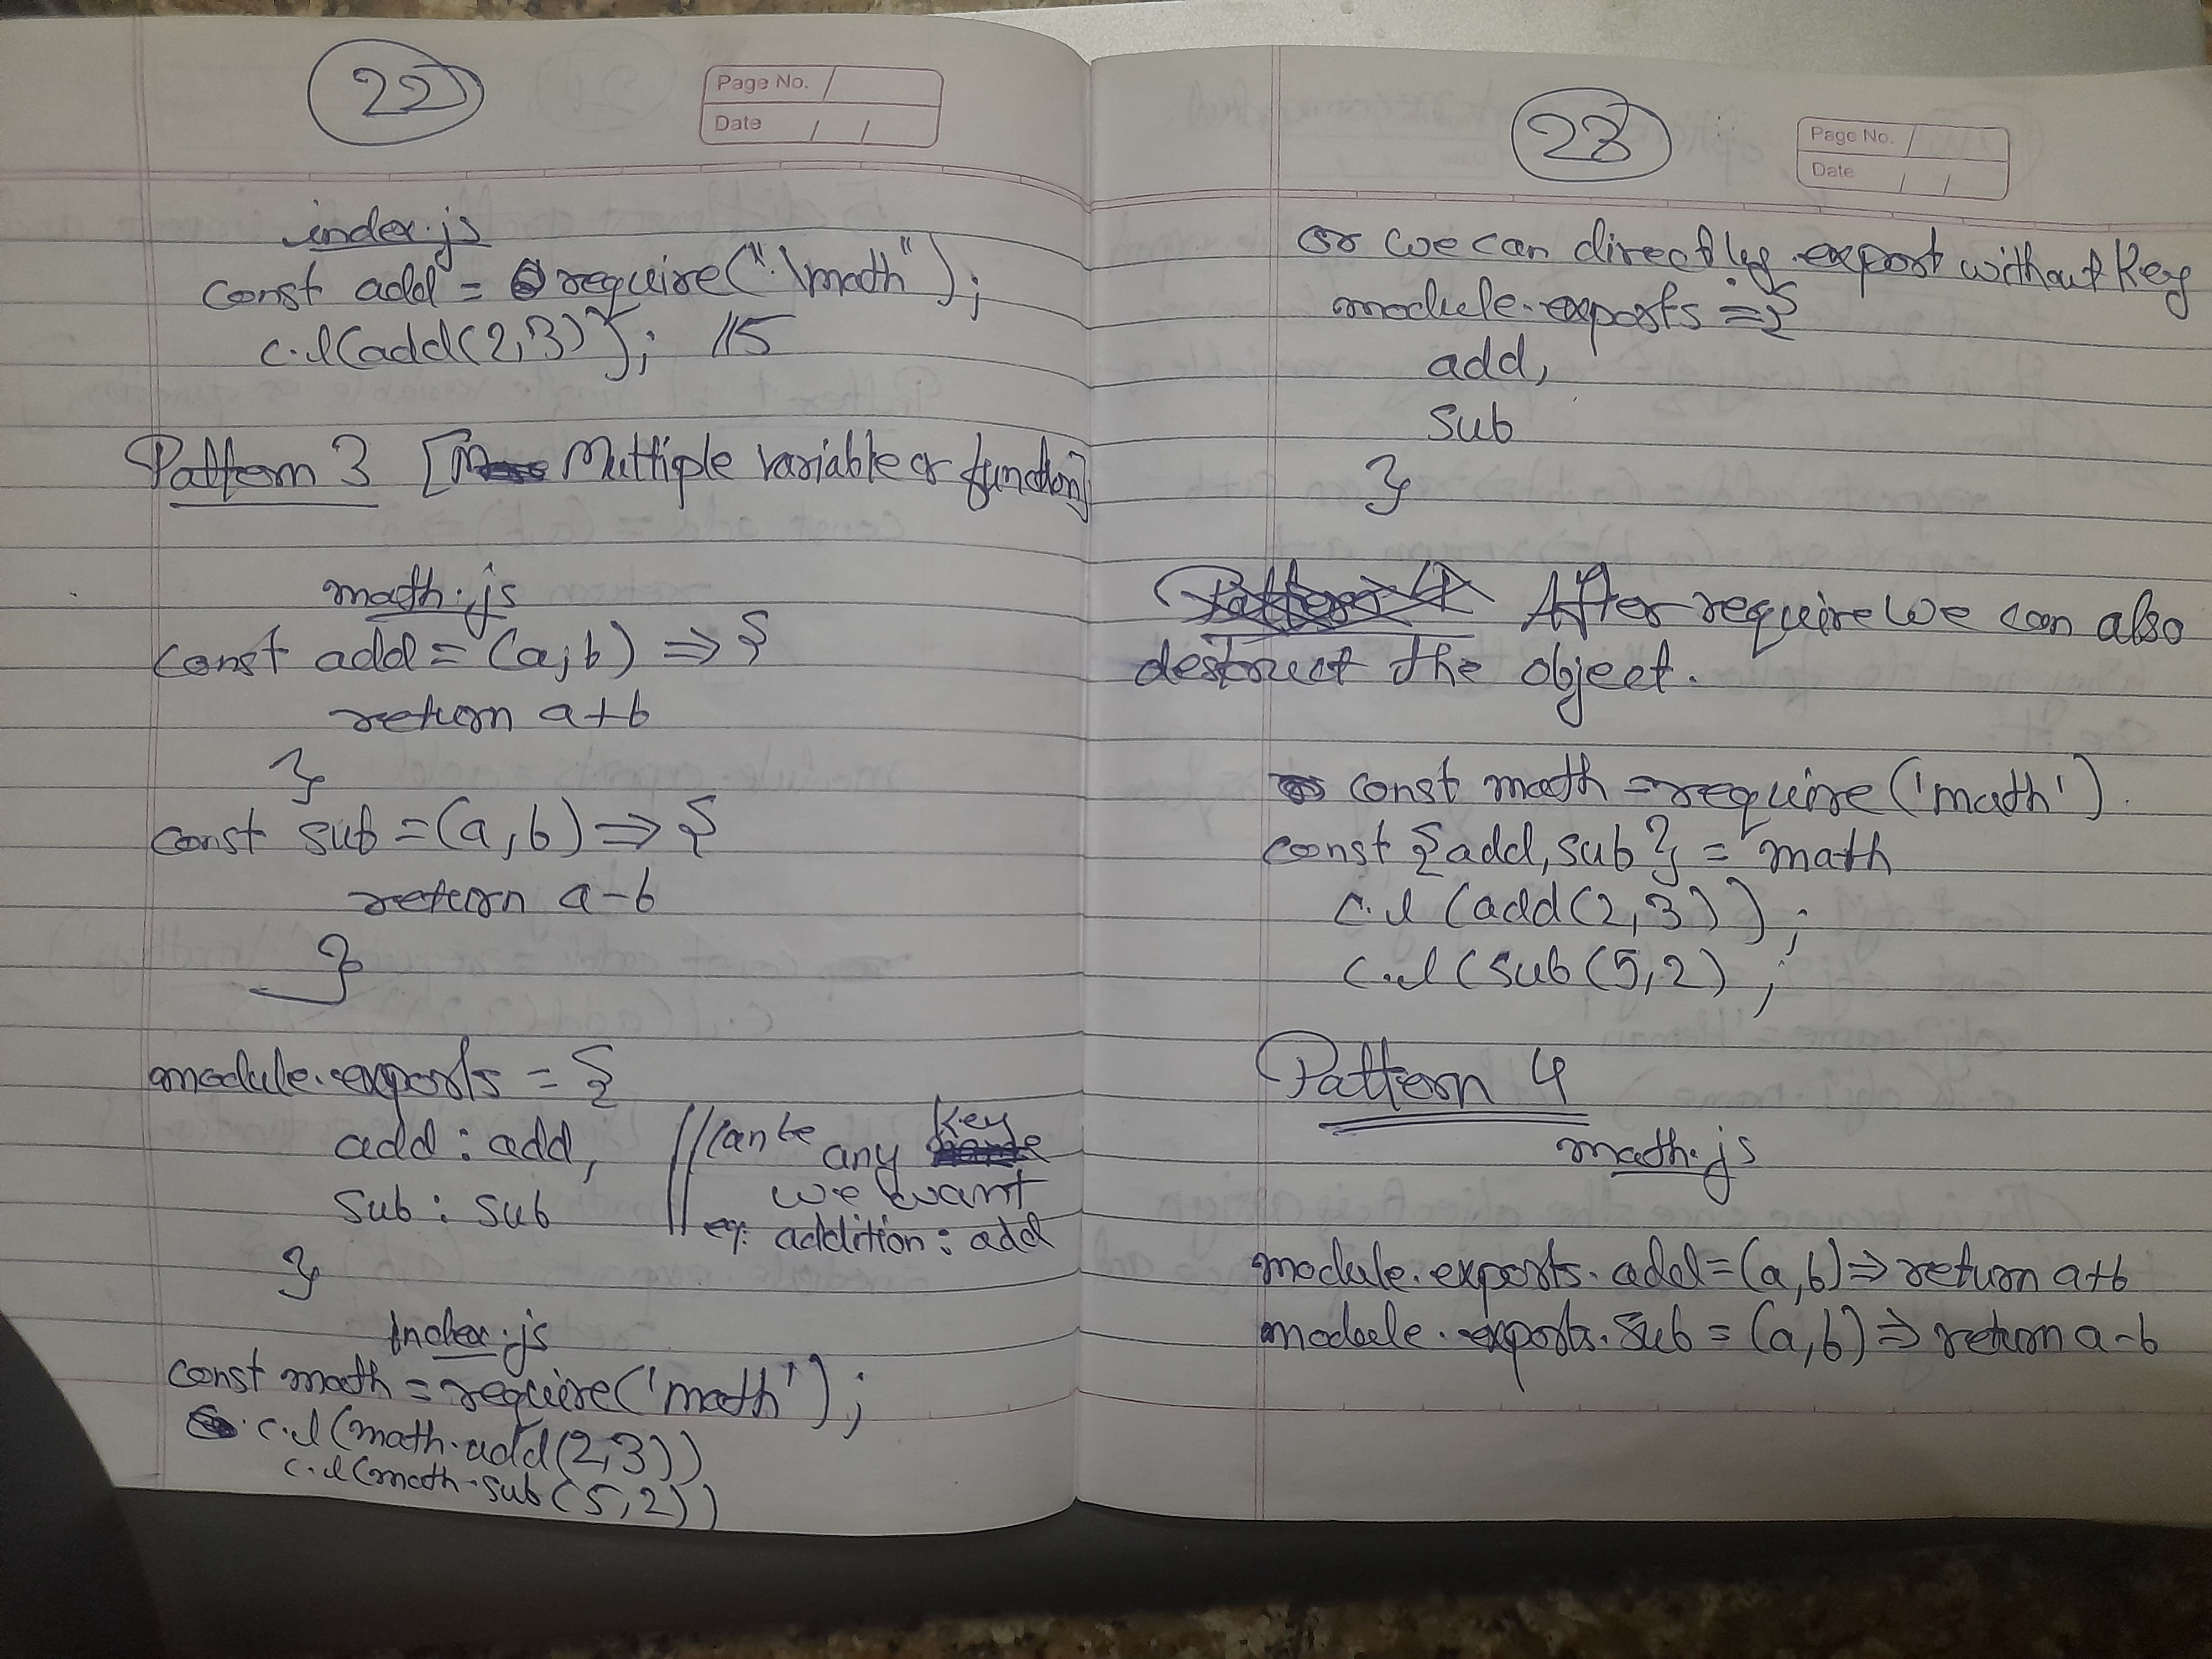 22
Page No.
Date / /
index.js
const add = require(".\math");
c.l(add(2,3)}; //5
Pattern 3 [Multiple variable or function]
math.js
const add = (a,b) => {
return a+b
}
const sub = (a,b) => {
return a-b
}
module.exports = {
add : add, // can be any key
sub : sub we want
eg: addition : add
}
index.js
const math = require('math');
c.l(math.add(2,3))
c.l(math.sub(5,2))
23
Page No.
Date / /
or we can directly export without key
module.exports = {
add,
sub
}
After require we can also
destruct the object.
const math = require('math').
const {add, sub} = math
c.l (add(2,3));
c.l (sub(5,2);
Pattern 4
math.js
module.exports.add = (a,b) => return a+b
module.exports.sub = (a,b) => return a-b